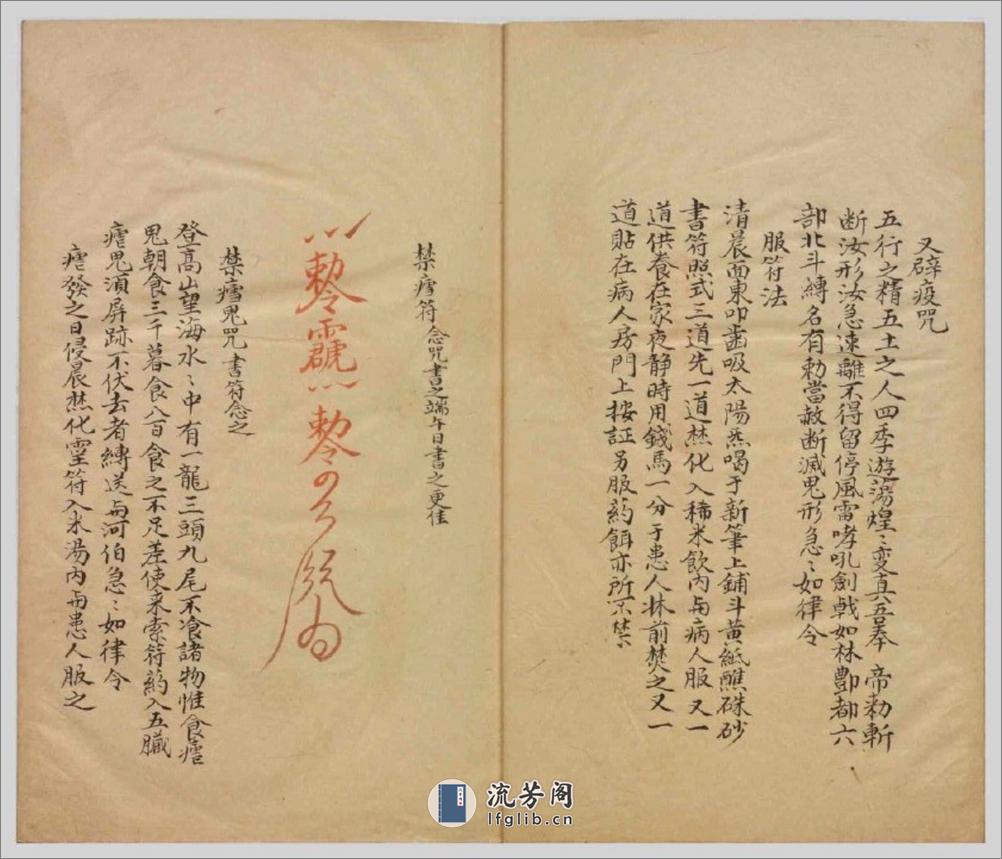 又辟疫咒
五行之精五土之人四季遊湯煌〻變真吾奉 帝勅斬
断汝形汝急速離不得留停風雷哮吼劍戟如林酆都六
部北斗縛名有勅當赦断滅鬼形急〻如律令
服符法
清晨面東叩齒吸太陽炁喝于新筆上鋪斗黃紙醮硃砂
書符照式三道先一道焚化入稀米飲內与病人服又一
道供養在家夜靜時用錢馬一分于患人牀前焚之又一
道貼在病人房門上按証另服药餌亦所不禁
禁瘧符 念咒書之端午日書之更佳
勅令
勅令
禁瘧鬼咒 書符念之
登高山望海水〻中有一龍三頭九尾不飡諸物惟食瘧
鬼朝食三千暮食八百食之不足差使來索符药入五臟
瘧鬼須屏跡不伏去者縛送与河伯急〻如律令
瘧發之日侵晨焚化靈符入米湯內与患人服之
流芳阁
lfglib.cn